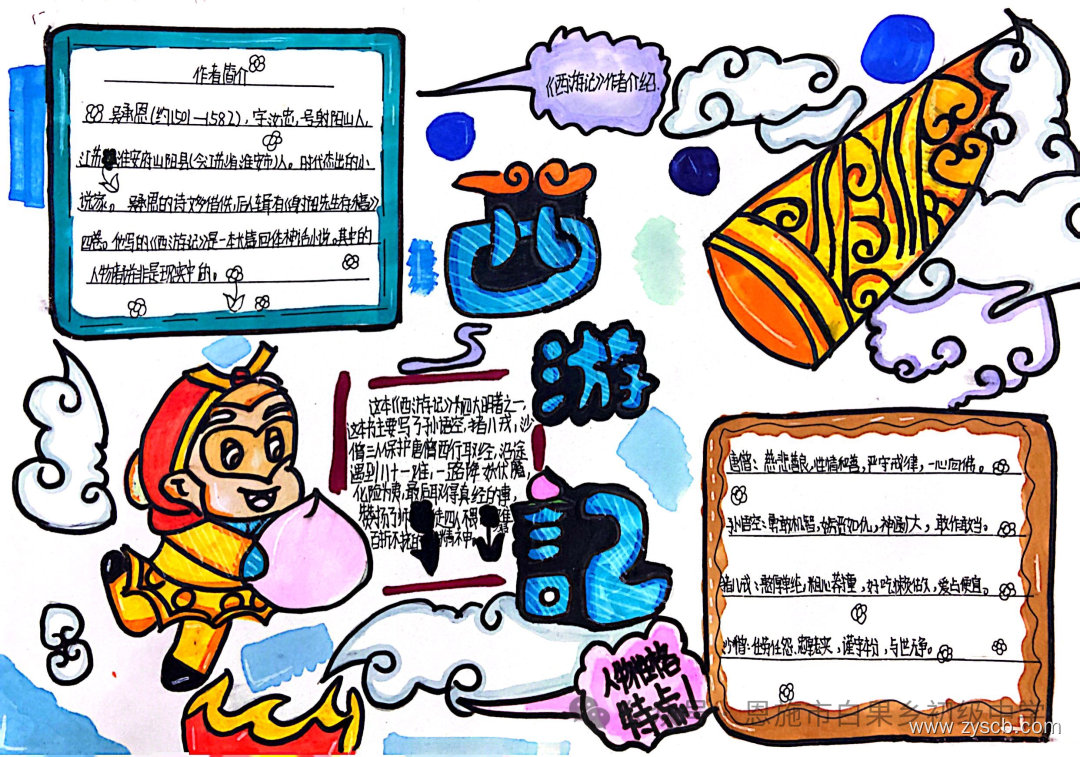 作者简介
吴承恩(约1501—1582),字汝忠,号射阳山人,
江苏淮安府山阳县(今江苏省淮安市)人。明代杰出的小
说家。吴承恩的诗文多借佚,后人辑有《射阳先生存稿》
四卷。他写的《西游记》是一本长篇回体神话小说。其中的
人物都非是现实中的。
《西游记》作者介绍
西
游
記
这本《西游记》为四大明著之一,
这本书主要写了孙悟空,猪八戒,沙
僧三人保护唐僧西行取经,沿途
遇到八十一难,一路降妖伏魔,
化险为夷,最后取得真经的事,
赞扬了师徒四人
百折不挠的精神。
唐僧:慈悲善良,性情和善,严守戒律,一心向佛。
孙悟空:勇敢机智,嫉恶如仇,神通广大,敢作敢当。
猪八戒:憨厚单纯,粗心莽撞,好吃懒做,爱占便宜。
沙僧:任劳任怨,忠诚老实,谨守本分,与世无争。
人物性格
特点!
恩施市白果乡初级中学
www.zyscb.com